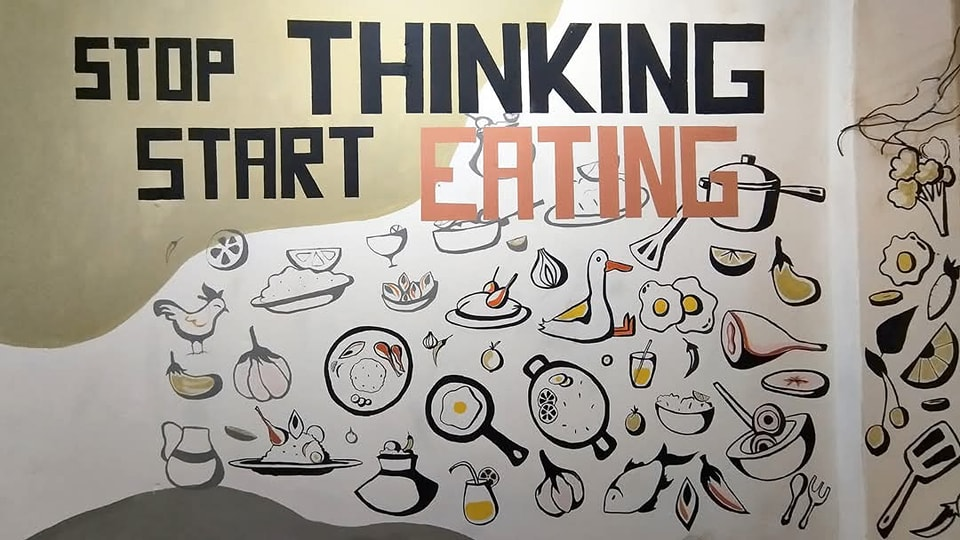 STOP THINKING
START EATING